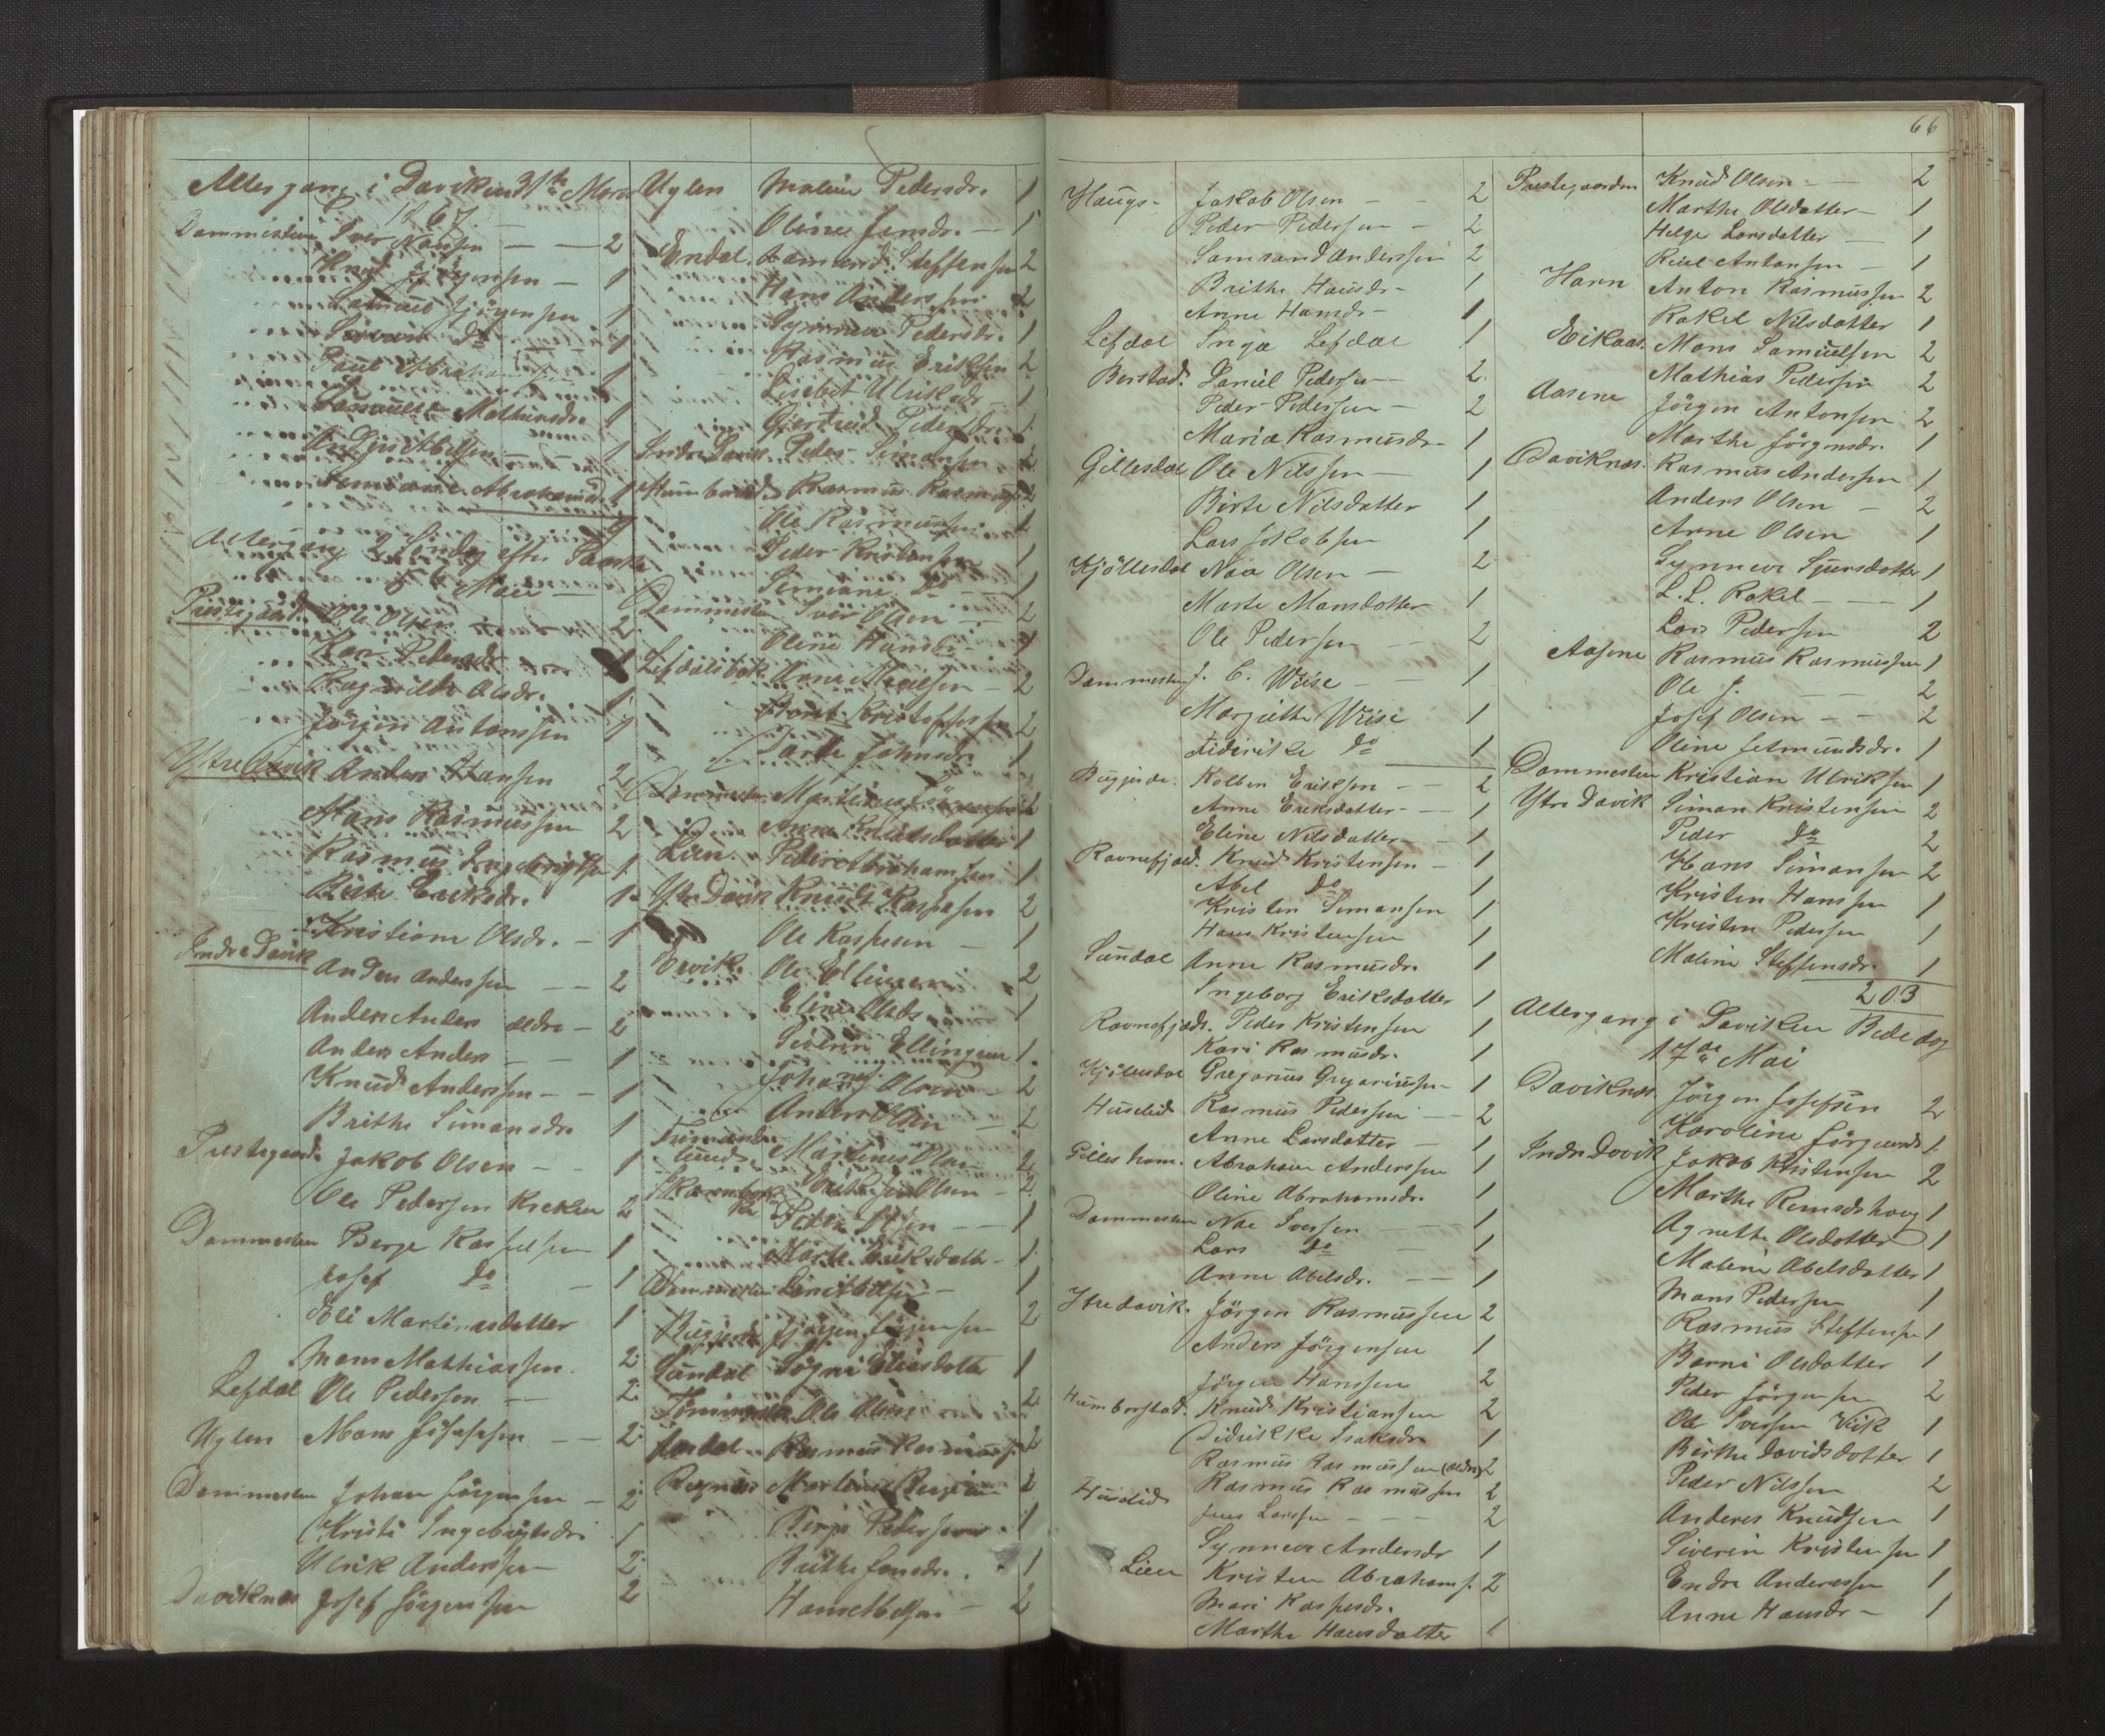 Altergang i Daviken 31te Marts
1867
Dammesten Iver Nansen — 2
Knut Jörgensen — 1
Samuel Jörgensen 1
do 1
Paul Abrahamsen 1
Mathiasdr. 1
Abelsen 1
Abrahamsdr. 1
Altergang 2 Söndag efter Paaske
5 Mai
Prestegaard. Ole Olsen 2
Kari Pedersdr. 1
Ragnilde Olsdr. 1
Jörgen Antonssen 1
Ytre Davik Anders Hansen 2
Hans Rasmussen 2
Rasmus Ingebrigtsen 1
Birte Eriksdr. 1
Kristiane Olsdr. — 1
Indre Davik
Anders Anderssen — 2
Anders Anders ældre — 2
Anders Anders — 1
Knud Anderssen — 1
Brithe Simonsdr. 1
Prestegaard. Jakob Olsen — 1
Ole Pedersen Kreken 2
Dammesten Berge Kaspersen 1
Josef do — 1
Eli Martinusdatter 1
Mons Mathiassen. 2
Lefdal Ole Pedersen — 2
Uglen Mons Josefsen — 2
Dammesten Johan Jörgensen — 2
Kristi Ingebrigtsdr. 1
Ulrik Anderssen 2
Daviknes Josef Jörgensen 2
Uglen Maline Pedersdr. 1
Oline Jansdr. — 1
Endal. Amund Steffensen 2
Hans Anderssen 2
Synneva Pedersdr. 1
Rasmus Eriksen 2
Lisebet Ulriksdr. 1
Gjertrud Pedersdr. 1
Indre Davik. Peder Simonsen 2
Humborstad Rasmus Rasmuss. 2
Ole Rasmussen 2
Peder Kristensen 1
Simiane do 1
Dammesten Iver Olsen — 2
Oline Hansdr. 1
Lefdalsbak Anne — 2
Kristoffersen 2
Marte Johnsdr. 1
Dammesten Martinus Jörgensen 2
Anne Knudsdatter 1
Lien. Peder Abrahamsen 1
Ytre Davik Knudt Kaspersen 2
Ole Kaspersen — 1
Ervik. Ole Ellingsen 2
Eline Olsdr. 1
Severin Ellingsen 1
Johannes Olsen 2
Anders Olsen 2
Martinus Olsen 2
Olsen — 2
Peder Olsen — 1
Marte Eriksdatter — 1
Dammesten 1
Rugjerde Jörgen Jörgensen 2
Sundal Sogni Eliasdotter 1
Ole Olsen 2
Rasmus Rasmussen 2
Martinus 2
Berge Pedersen 1
Brithe Jansdr. 1
Hans Abelsen — 2
66
Haugs- Jakob Olsen — 2
Peder Pedersen — 2
Samsand Anderssen 2
Brithe Hansdr — 1
Anne Hansdr — 1
Lefdal Inga Lefdal 1
Borstad. Daniel Pedersen 2
Peder Pedersen — 2
Maria Rasmusdr. 1
Gillesdal Ole Nilssen — 1
Birte Nilsdatter 1
Lars Jakobsen 1
Kjöllesdal Naa Olsen — 2
Marte Monsdotter 1
Ole Pedersen — 2
Dammesten J. C. Wiise — 1
Margrethe Wiise 1
Didirike do 1
Rugjerde. Kolben Eriksen — 2
Anne Eriksdatter — 1
Eline Nilsdatter — 1
Ravnefjæld. Knud Kristensen — 1
Abel do 1
Kristen Simonsen 1
Hans Kristensen 1
Sundal Anne Rasmusdr. 1
Ingeborg Eriksdatter 1
Ravnefjæld. Peder Kristensen 1
Kari Rasmusdr. 1
Kjöllesdal Gregorius Gregoriussen — 1
Huselid Rasmus Pedersen — 2
Anne Larsdatter — 1
Gillesham. Abraham Anderssen 1
Oline Abrahamsdr. 1
Dammesten Nae Iverssen — 1
Lars do — 1
Anne Abelsdr. — 1
Ytredavik. Jörgen Rasmussen 2
Anders Jörgensen 1
Jörgen Hanssen 2
Humborstad. Knud Kristiansen 2
Didrikke Isaksdr. 1
Rasmus Rasmussen (ældre) 2
Huselid Rasmus Rasmussen 2
Jens Larssen — 2
Synneve Andersdr 1
Lien Kristen Abrahams. 2
Mari Kaspersdr.
Marthe Hansdatter 1
Prestegaarden Knud Olsen — 2
Marthe Olsdatter — 1
Helge Larsdatter — 1
Antonsen — 1
Havn Anton Rasmussen 2
Rakel Nilsdatter 1
Eikaas. Mons Samuelsen 2
Mathias Pedersen 2
Aasene Jörgen Antonsen 2
Marthe Jörgensdr. 1
Daviknes. Rasmus Anderssen 1
Anders Olsen — 2
Anne Olsen 1
Synneve Sjursdotter 1
L. L. Rakel — 1
Lars Pedersen 2
Aasene Rasmus Rasmussen 1
Ole J. — 2
Josef Olsen — 2
Oline Jetmundsdr. 1
Dammesten Kristian Ulriksen 1
Ytre Davik Simon Kristensen 2
Peder do 2
Hans Simonsen 2
Kristen Hanssen 1
Kristen Pedersen 1
Maline Steffensdr. 1
203
Altergang i Daviken Bededag
17de Mai
Daviknes. Jörgen Josefsen 2
Karoline Jörgensd. 1
Indre Davik Jakob Kristensen 2
Marthe Rimsdshoug 1
Agnethe Olsdotter 1
Maline Abelsdatter 1
Mons Pedersen 1
Rasmus Steffensen 1
Barni Olsdatter 1
Peder Jörgensen 2
Ole Iverssen Viik 1
Birthe Davidsdotter 1
Peder Nilssen 2
Anders Knudsen 1
Siverin Kristensen 1
Endre Anderssen 1
Anne Hansdr — 1